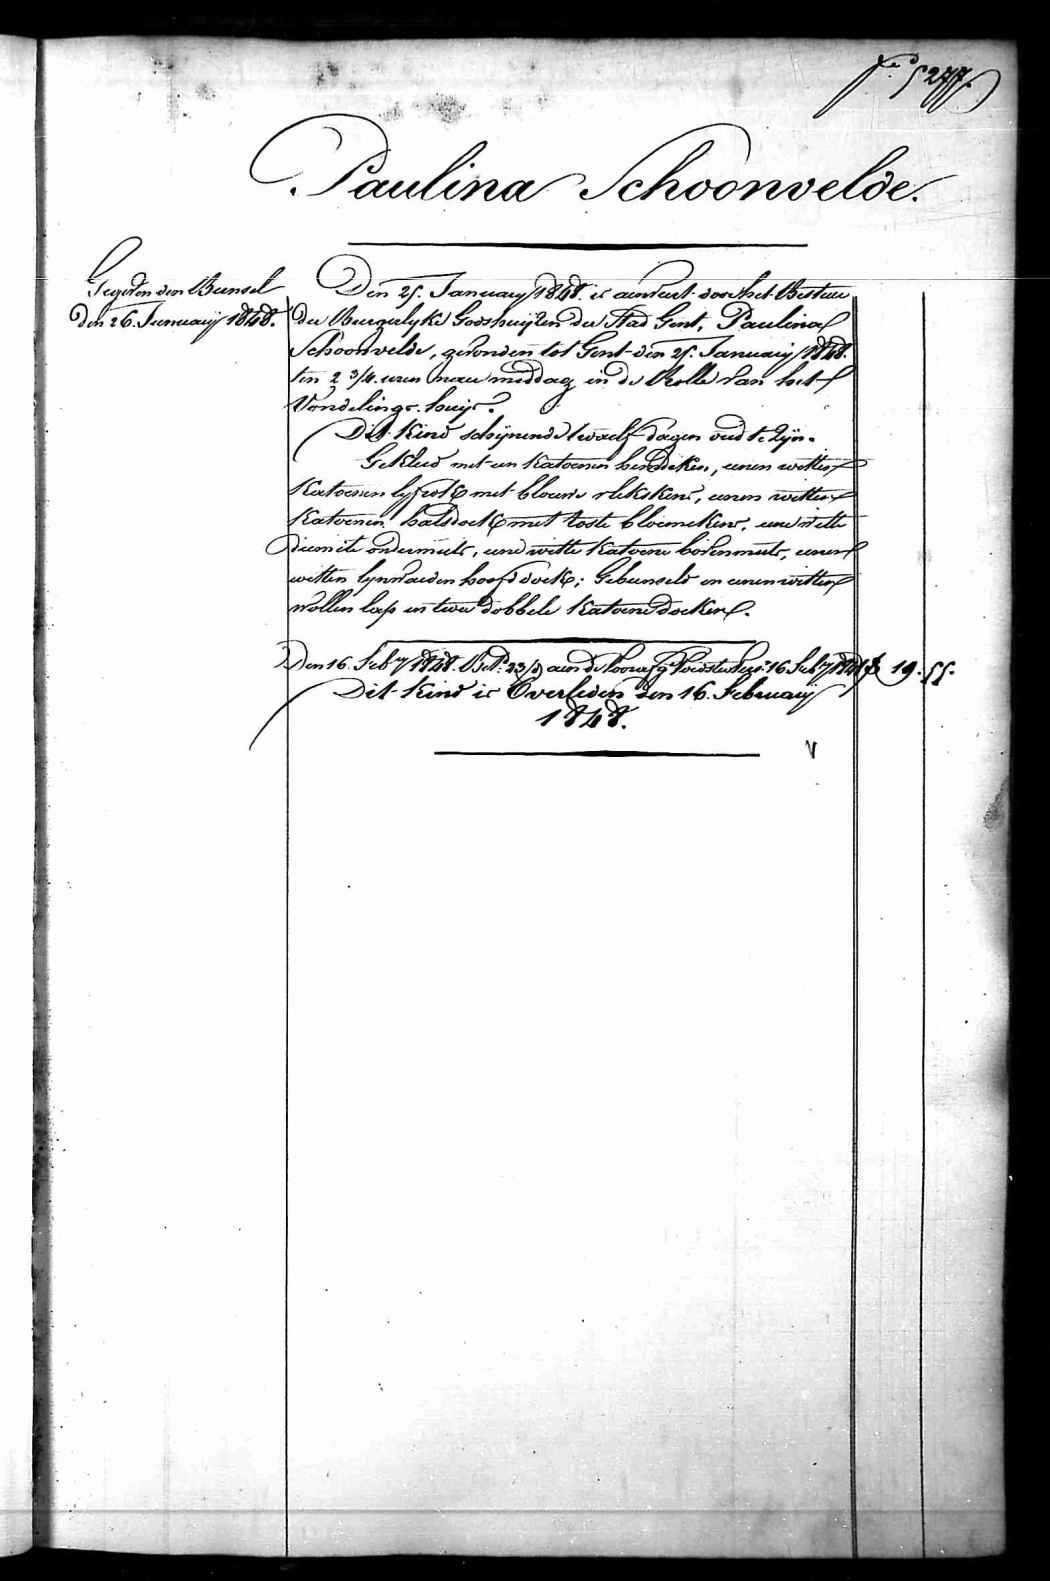 F.o 5277.
Paulina Schoonvelde.
Gegeven den Bunsel
den 26. January 1848.
Den 25. January 1848. is aenveert door het Bestuer
der Burgerlyke Godshuyzen der Stad Gent, Paulina
Schoonvelde, gevonden tot Gent den 25. January 1848.
ten 2 3/4 uren naer middag in de Rolle van het
Vondelings-huys.
Dit kind schynende twaelf dagen oud te zyn.
Gekleed met een katoenen hemdeken, eenen witten
katoenen lyfrok met blouwe vlekskens, eenen witten
katoenen halsdoek met roste bloemekens, eene witte
diemite ondermuts, eene witte katoene bovenmuts, eenen
witten lynwaeden hoofddoek; Gebunseld in eenen witten
wollen lap en twee dobbele katoene doeken.
Den 16. Feby 1848. Bet. 23/d aen de voorsz. Voedster 16 Feby 1848 f 19.55.
Dit kind is Overleden den 16. February
1848.
V